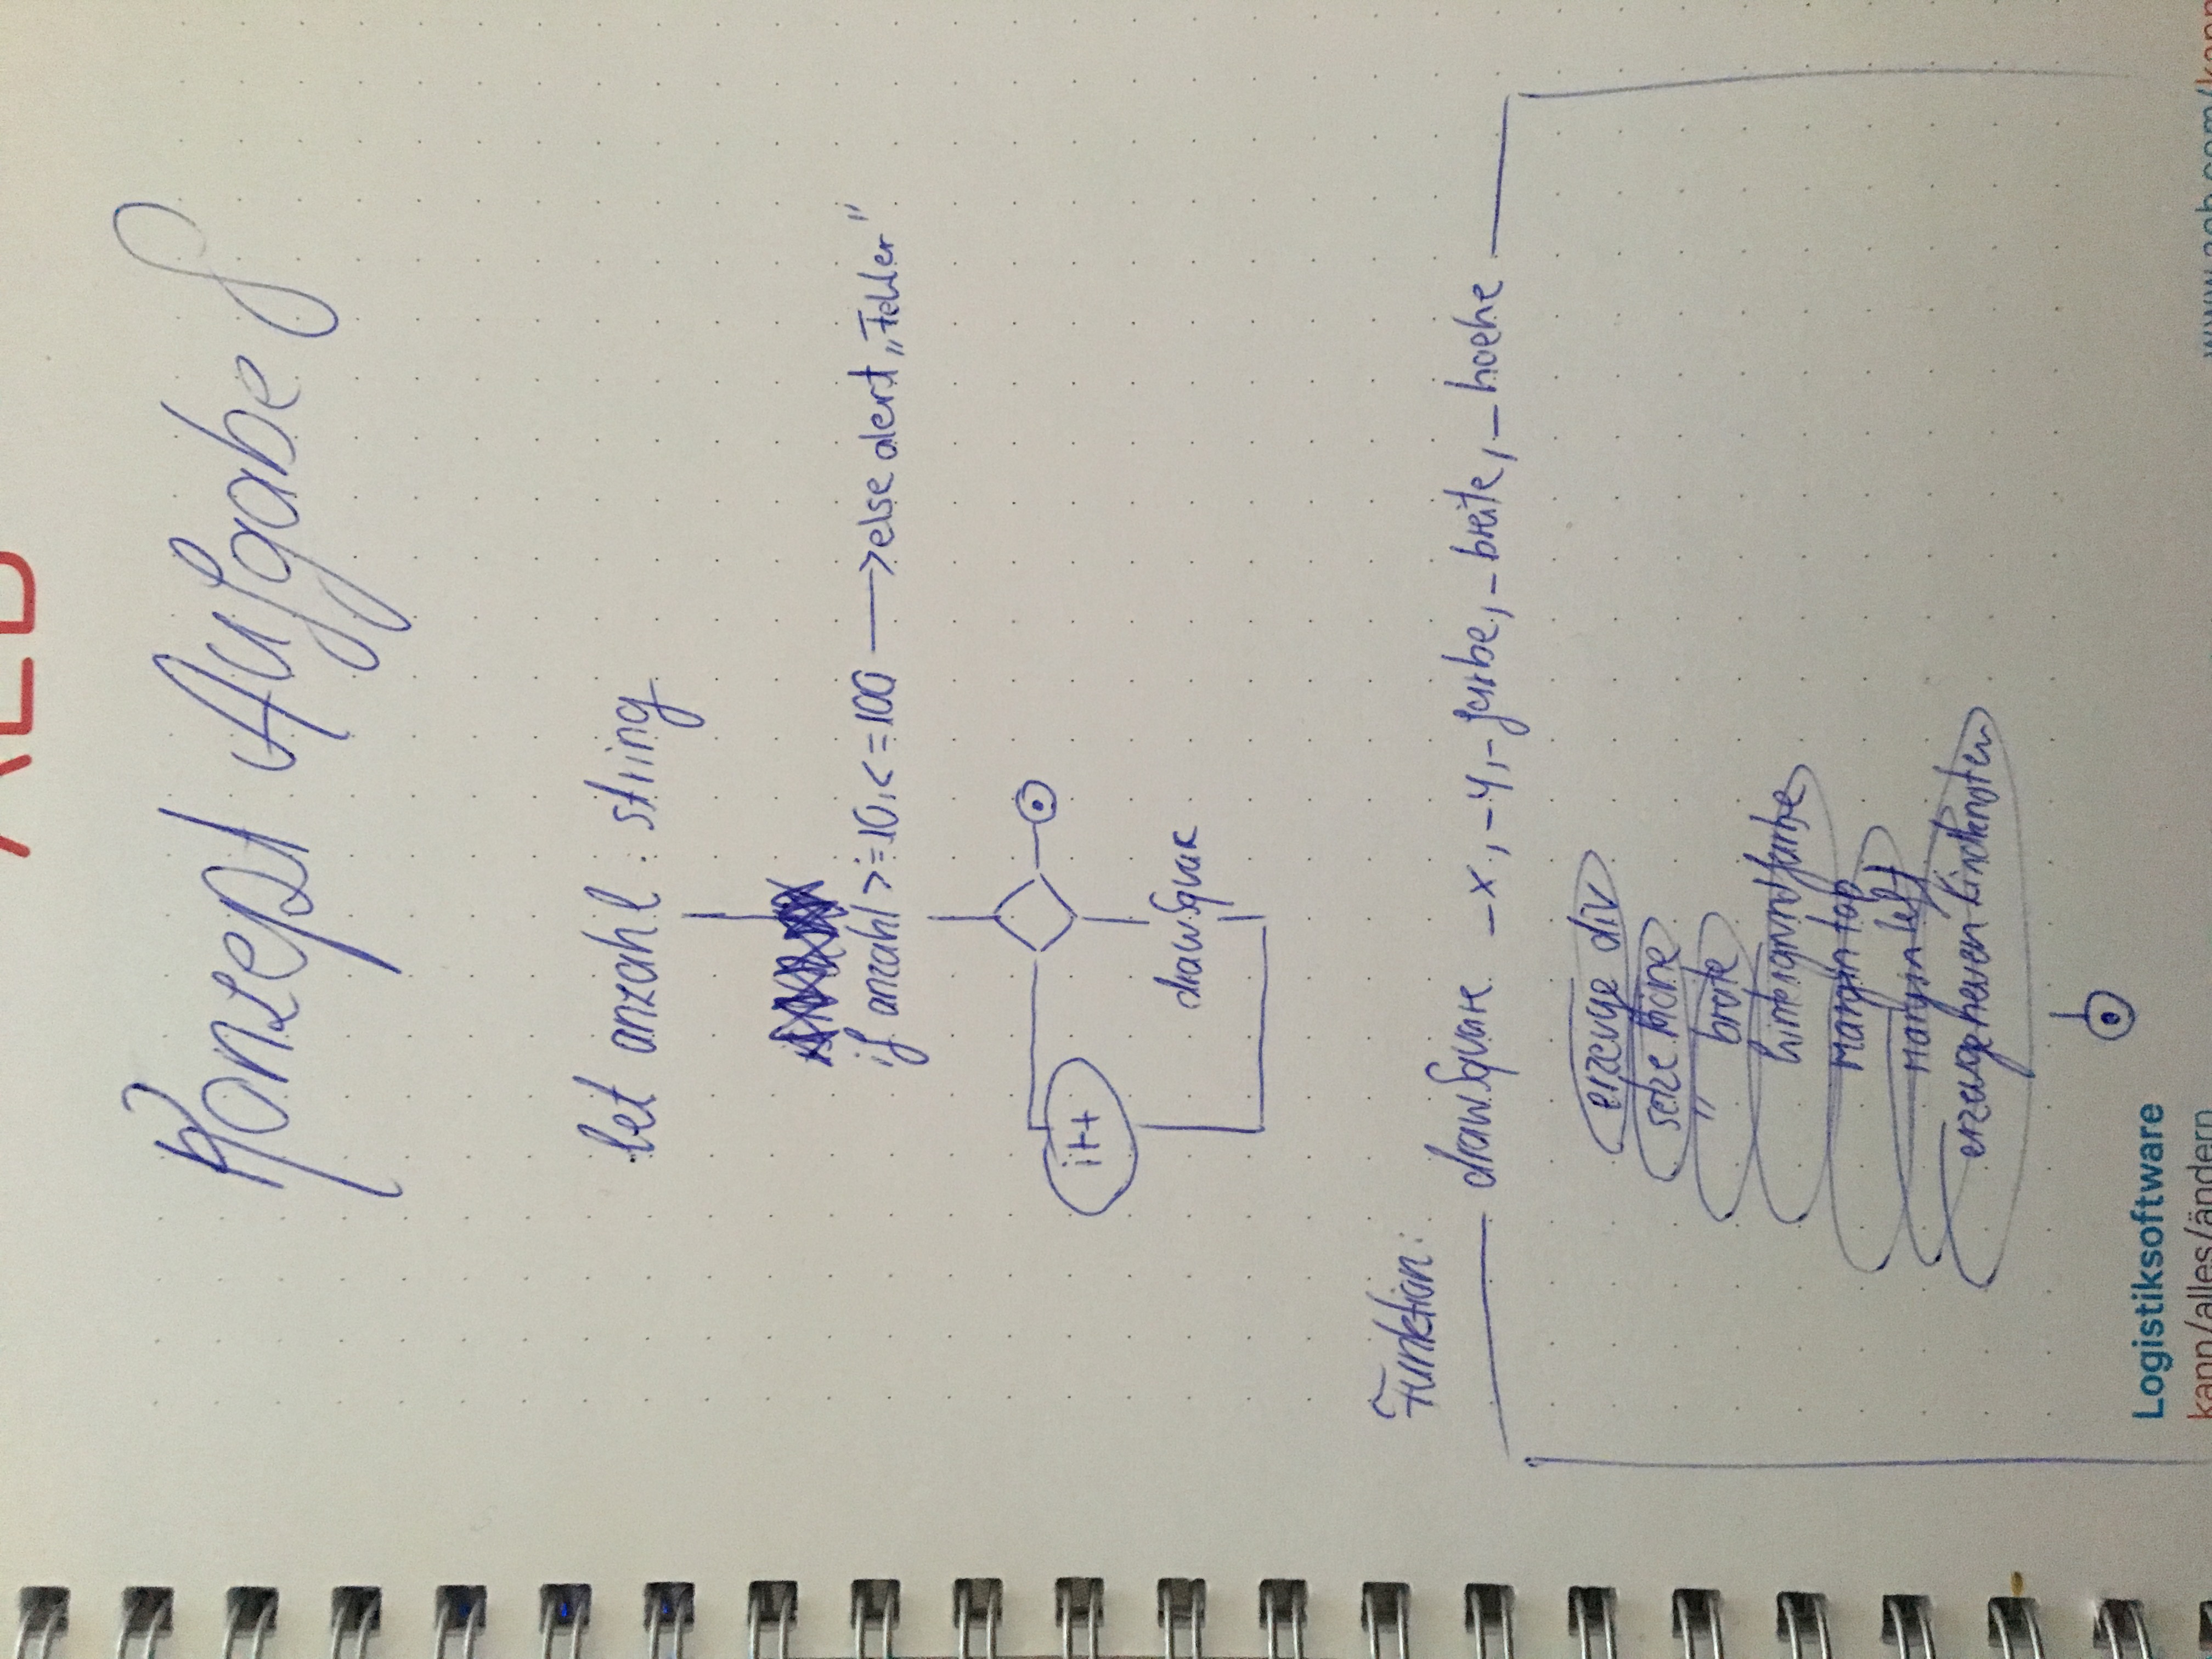 AEB
Konzept Aufgabe 8
let anzahl : string
if anzahl >= 10, <= 100 → else alert „Fehler"
i++
drawSquare
Funktion:
drawSquare _x, _y, _farbe, _breite, _hoehe
erzeuge div
setze Höhe
" breite
hintergrundfarbe
Margin top
Margin left
erzeuge neuen Kindknoten
Logistiksoftware
kann/alles/ändern